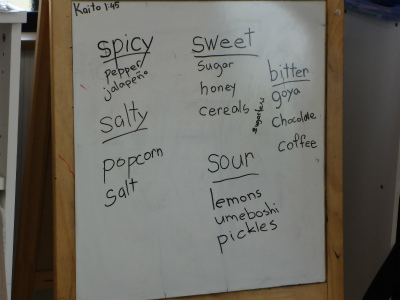 Kaito 1:45
spicy
pepper
jalapeño
salty
popcorn
salt
sweet
sugar
honey
cereals
sour
lemons
umeboshi
pickles
bitter
goya
sugarless
chocolate
coffee